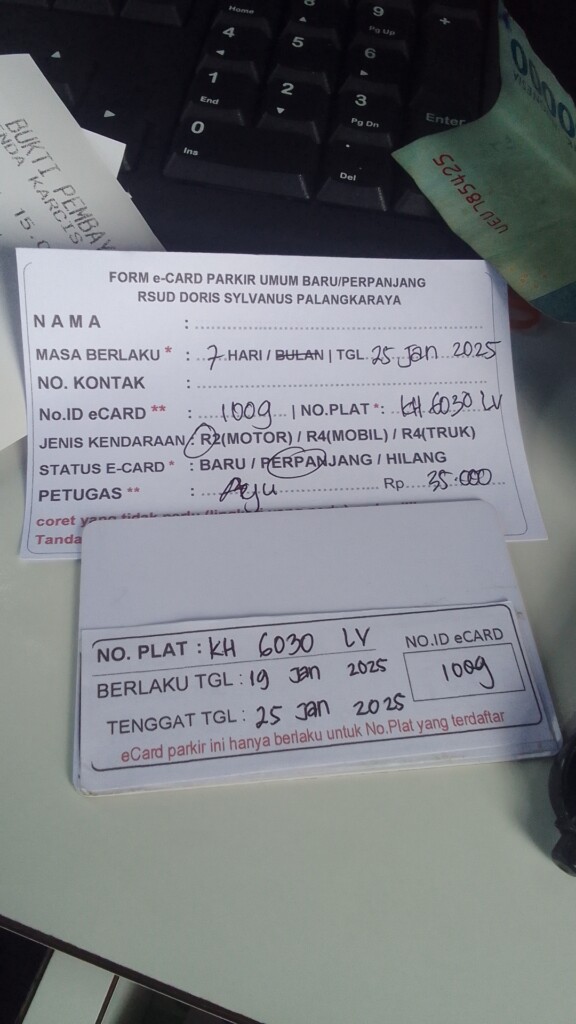 Home
8
9
Pg Up
+
4
5
6
1
End
2
3
Pg Dn
Enter
0
Ins
.
Del
UEU785425
BUKTI PEMBAY
ENDA KARCIS
15.0
FORM e-CARD PARKIR UMUM BARU/PERPANJANG
RSUD DORIS SYLVANUS PALANGKARAYA
NAMA :
MASA BERLAKU * : 7 HARI / BULAN | TGL 25 Jan 2025
NO. KONTAK :
No.ID eCARD ** : 1009 | NO.PLAT *: KH 6030 LV
JENIS KENDARAAN : R2(MOTOR) / R4(MOBIL) / R4(TRUK)
STATUS E-CARD * : BARU / PERPANJANG / HILANG
PETUGAS ** : Ayu Rp 35.000
coret yang tidak perlu
Tanda
NO. PLAT : KH 6030 LV
NO.ID eCARD
BERLAKU TGL : 19 Jan 2025
1009
TENGGAT TGL : 25 Jan 2025
eCard parkir ini hanya berlaku untuk No.Plat yang terdaftar